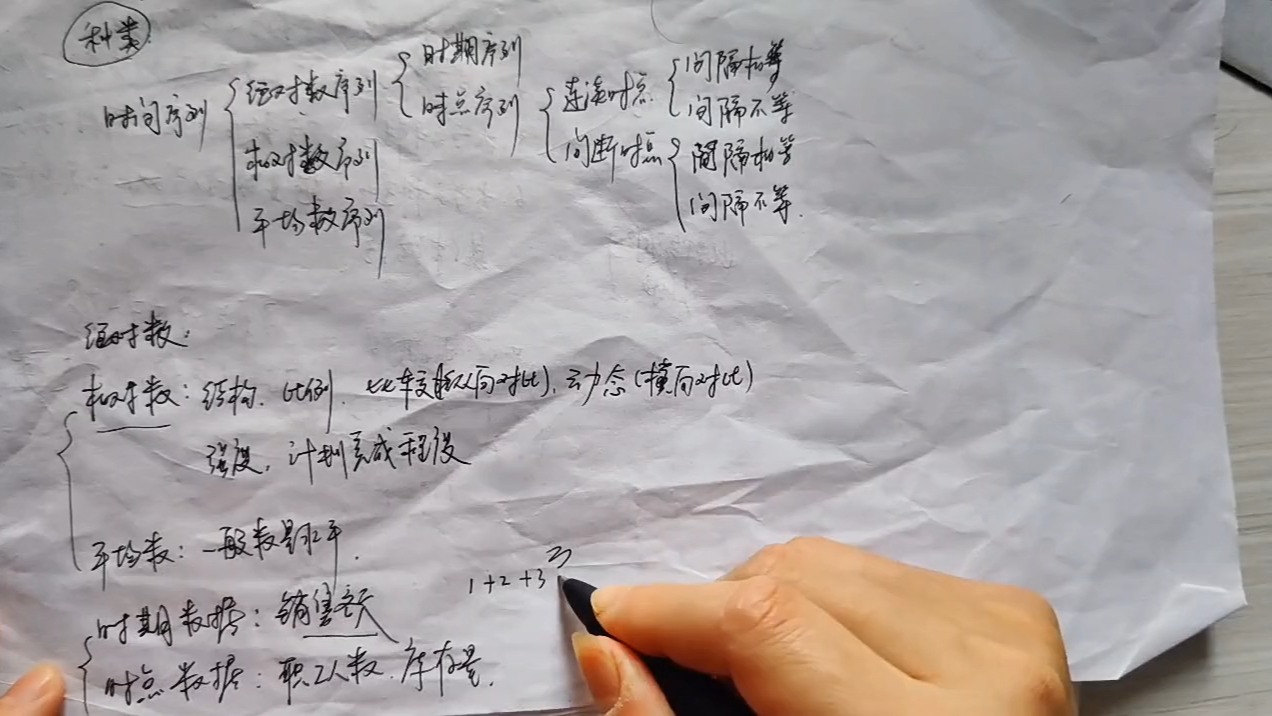 种类
时间序列
绝对数序列
相对数序列
平均数序列
时期序列
时点序列
连续时点
间断时点
间隔相等
间隔不等
间隔相等
间隔不等.
绝对数:
相对数: 结构、比例、比较(纵向对比)、动态(横向对比)
强度、计划完成程度
平均数: 一般数量水平.
时期数据: 销售额
时点数据: 职工人数、库存量.
1+2+3
3